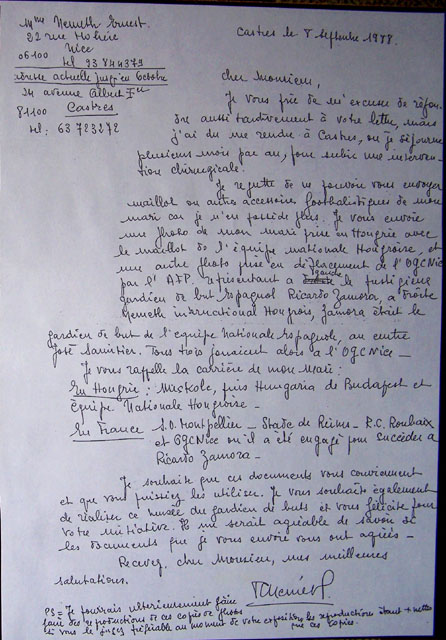 Mme Nemeth Ernest.
22 rue
Nice
06100
tel 93 844379
adresse actuelle jusqu'en Octobre
24 avenue Albert Ier
81100 Castres
tel: 63 723272
Castres le 8 septembre 1988.
Cher Monsieur,
Je vous prie de m'excuser de répon-
dre aussi tardivement à votre lettre, mais
j'ai du me rendre à Castres, ou je séjourne
plusieurs mois par an, pour subir une interven-
tion chirurgicale.
Je regrette de ne pouvoir vous envoyer
maillot ou autres accessoires footballistiques de mon
mari car je n'en possède plus. Je vous envoie
une photo de mon mari prise en Hongrie avec
le maillot de l'équipe nationale Hongroise, et
une autre photo prise en déplacement de l'OGCNice
par l'AFP. représentant à gauche le prestigieux
gardien de but Espagnol Ricardo Zamora, à droite
Nemeth international Hongrois, Zamora était le
gardien de but de l'équipe Nationale Espagnole, au centre
José Samitier. Tous trois jouaient alors à l'OGCNice_
Je vous rappelle la carrière de mon Mari:
En Hongrie: puis Hungaria de Budapest et
Equipe Nationale Hongroise_
En France S.O. Montpellier_ Stade de Reims_ R.C. Roubaix
et OGCNice ou il a été engagé pour succéder à
Ricardo Zamora_
Je souhaite que ces documents vous conviennent
et que vous puissiez les utiliser. Je vous souhaite également
de réaliser ce musée du gardien de buts et vous félicite pour
votre initiative. Il me serait agréable de savoir si
les documents que je vous envoie vous ont agréés_
Recevez, cher Monsieur, mes meilleures
salutations.
PS = Je pourrais ultérieurement faire
faire des reproductions de ces copies de photos
si vous le jugez préférable au moment de votre exposition, les reproductions étant + nettes
que ces copies.